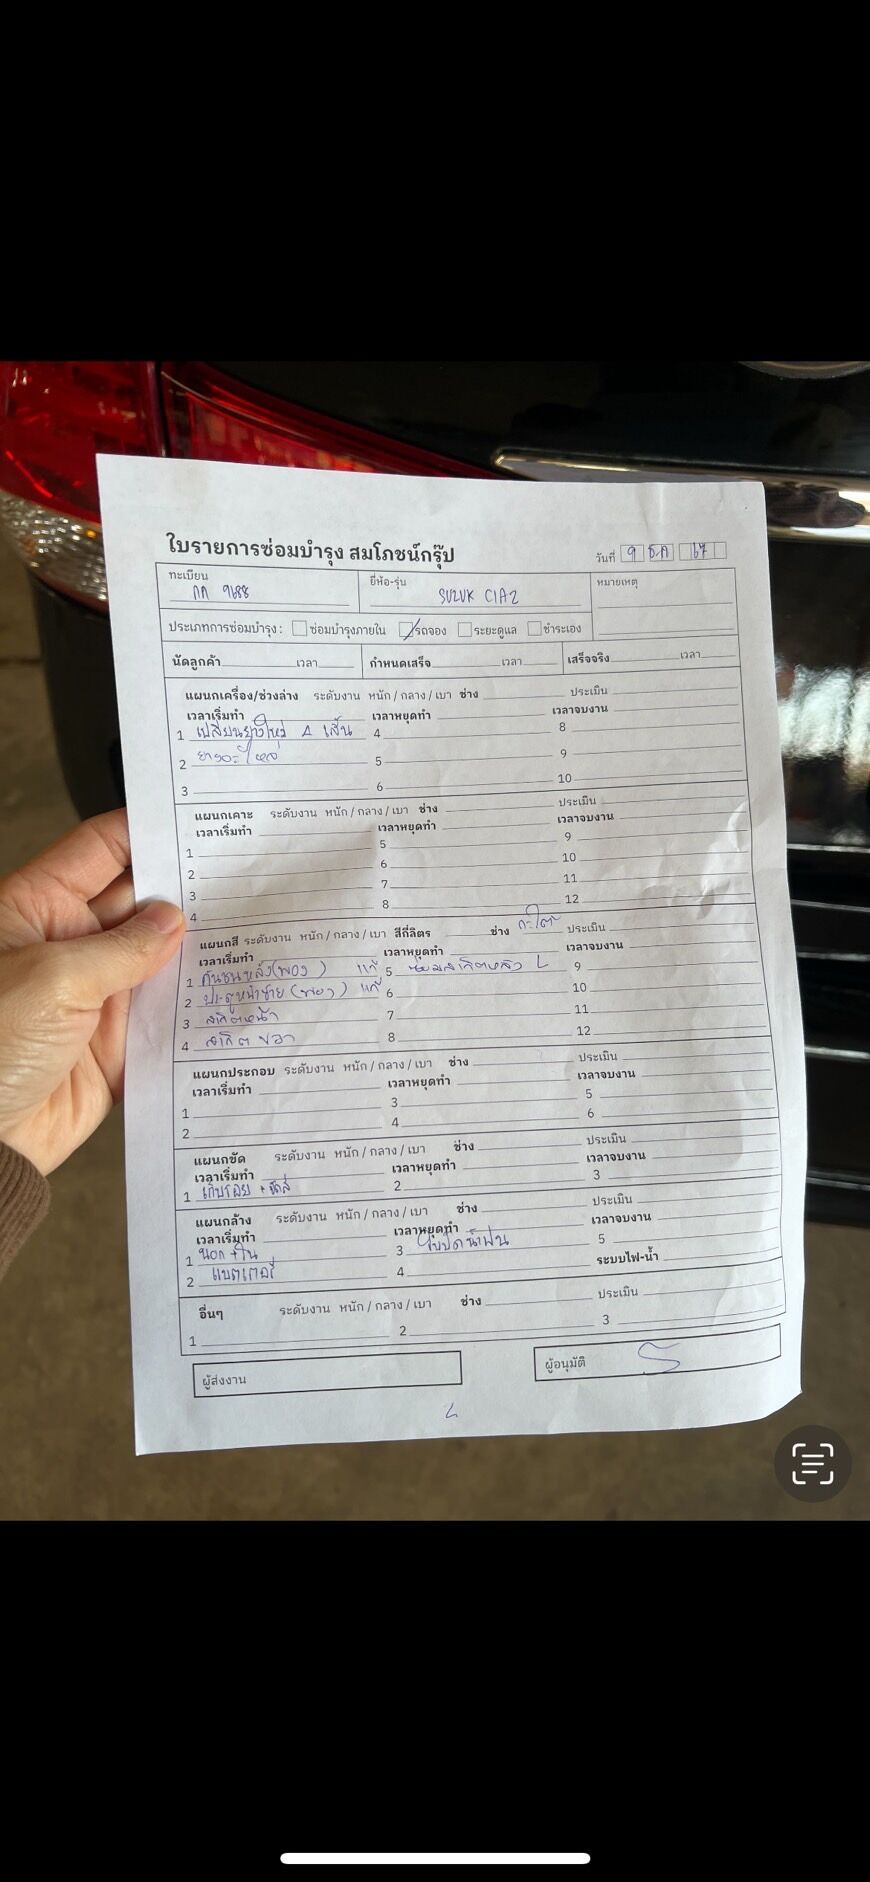 ใบรายการซ่อมบำรุง สมโภชน์กรุ๊ป
วันที่ 9 ธ.ค 67
ทะเบียน ยี่ห้อ-รุ่น หมายเหตุ
กก 9688 SUZUK CIAZ
ประเภทการซ่อมบำรุง : ซ่อมบำรุงภายใน รถจอง ระยะดูแล ชำระเอง
นัดลูกค้า เวลา กำหนดเสร็จ เวลา เสร็จจริง เวลา
แผนกเครื่อง/ช่วงล่าง ระดับงาน หนัก / กลาง / เบา ช่าง ประเมิน
เวลาเริ่มทำ เวลาหยุดทำ เวลาจบงาน
1 เปลี่ยนยางใหม่ 4 เส้น 4 8
2 5 9
3 6 10
แผนกเคาะ ระดับงาน หนัก / กลาง / เบา ช่าง ประเมิน
เวลาเริ่มทำ เวลาหยุดทำ เวลาจบงาน
1 5 9
2 6 10
3 7 11
4 8 12
แผนกสี ระดับงาน หนัก / กลาง / เบา สีกี่ลิตร ช่าง ประเมิน
เวลาเริ่มทำ เวลาหยุดทำ เวลาจบงาน
1 กันชนหลัง (พอง) แก้ 5 ซ่อมสเกิตหลัง L 9
2 ประตูหน้าซ้าย (พอง) แก้ 6 10
3 สเกิตหน้า 7 11
4 สเกิต ขวา 8 12
แผนกประกอบ ระดับงาน หนัก / กลาง / เบา ช่าง ประเมิน
เวลาเริ่มทำ เวลาหยุดทำ เวลาจบงาน
1 3 5
2 4 6
แผนกขัด ระดับงาน หนัก / กลาง / เบา ช่าง ประเมิน
เวลาเริ่มทำ เวลาหยุดทำ เวลาจบงาน
1 เก็บรอย + ขัดสี 2 3
แผนกล้าง ระดับงาน หนัก / กลาง / เบา ช่าง ประเมิน
เวลาเริ่มทำ เวลาหยุดทำ เวลาจบงาน
1 นอก + ใน 3 ใบปัดน้ำฝน 5
2 แบตเตอรี่ 4 ระบบไฟ-น้ำ
อื่นๆ ระดับงาน หนัก / กลาง / เบา ช่าง ประเมิน
1 2 3
ผู้ส่งงาน ผู้อนุมัติ